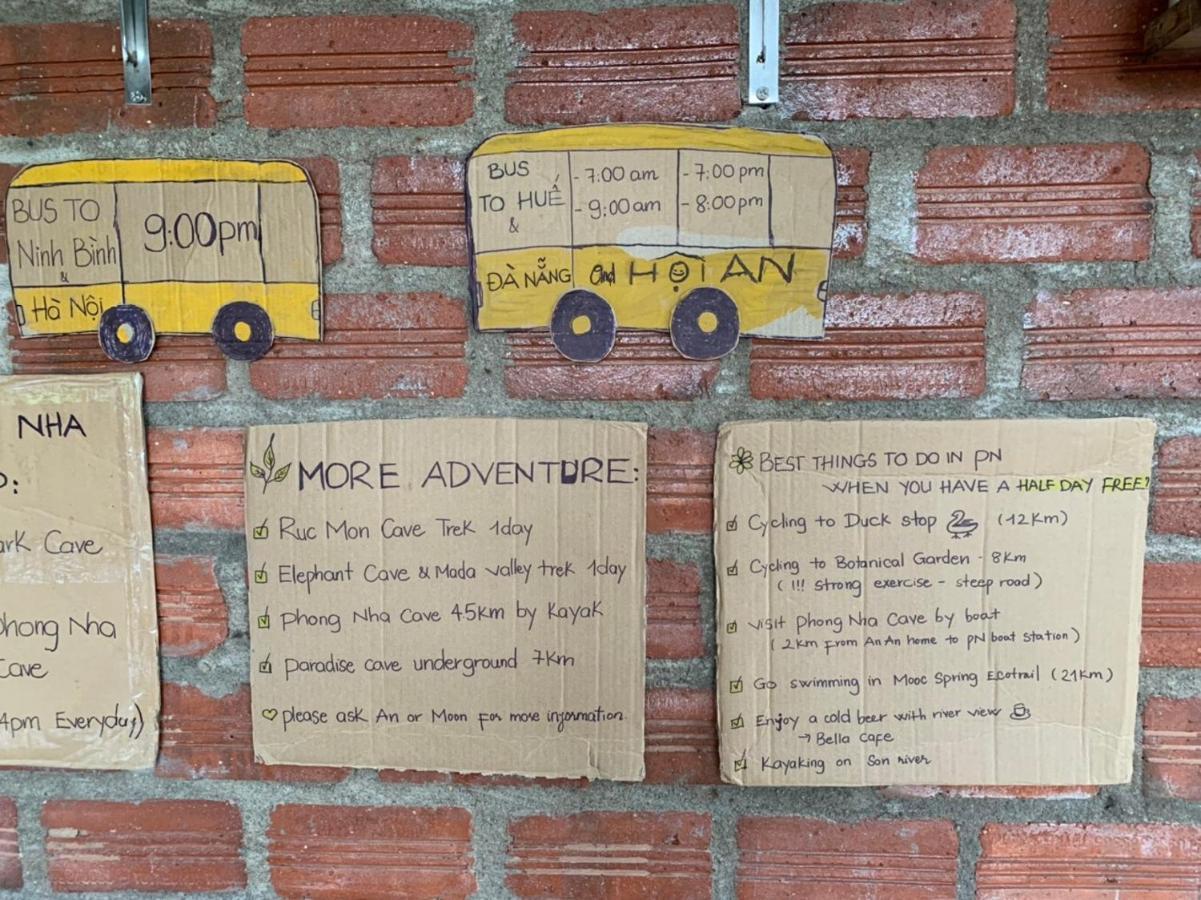 BUS TO
Ninh Bình
&
Hà Nội
9:00pm
BUS
TO HUẾ
&
ĐÀ NẴNG and HỘI AN
- 7:00 am
- 9:00 am
- 7:00 pm
- 8:00 pm
NHA
ark Cave
phong Nha
Cave
4pm Everyday)
MORE ADVENTURE:
Ruc Mon Cave Trek 1day
Elephant Cave & Mada valley trek 1day
Phong Nha Cave 4.5km by Kayak
paradise cave underground 7km
please ask An or Moon for more information
BEST THINGS TO DO IN PN
WHEN YOU HAVE A HALF DAY FREE?
Cycling to Duck stop (12km)
Cycling to Botanical Garden - 8km
( !!! strong exercise - steep road )
visit phong Nha Cave by boat
( 2km from An An home to PN boat station )
Go swimming in Mooc Spring Ecotrail (21km)
Enjoy a cold beer with river view
→ Bella Cafe
Kayaking on Son river